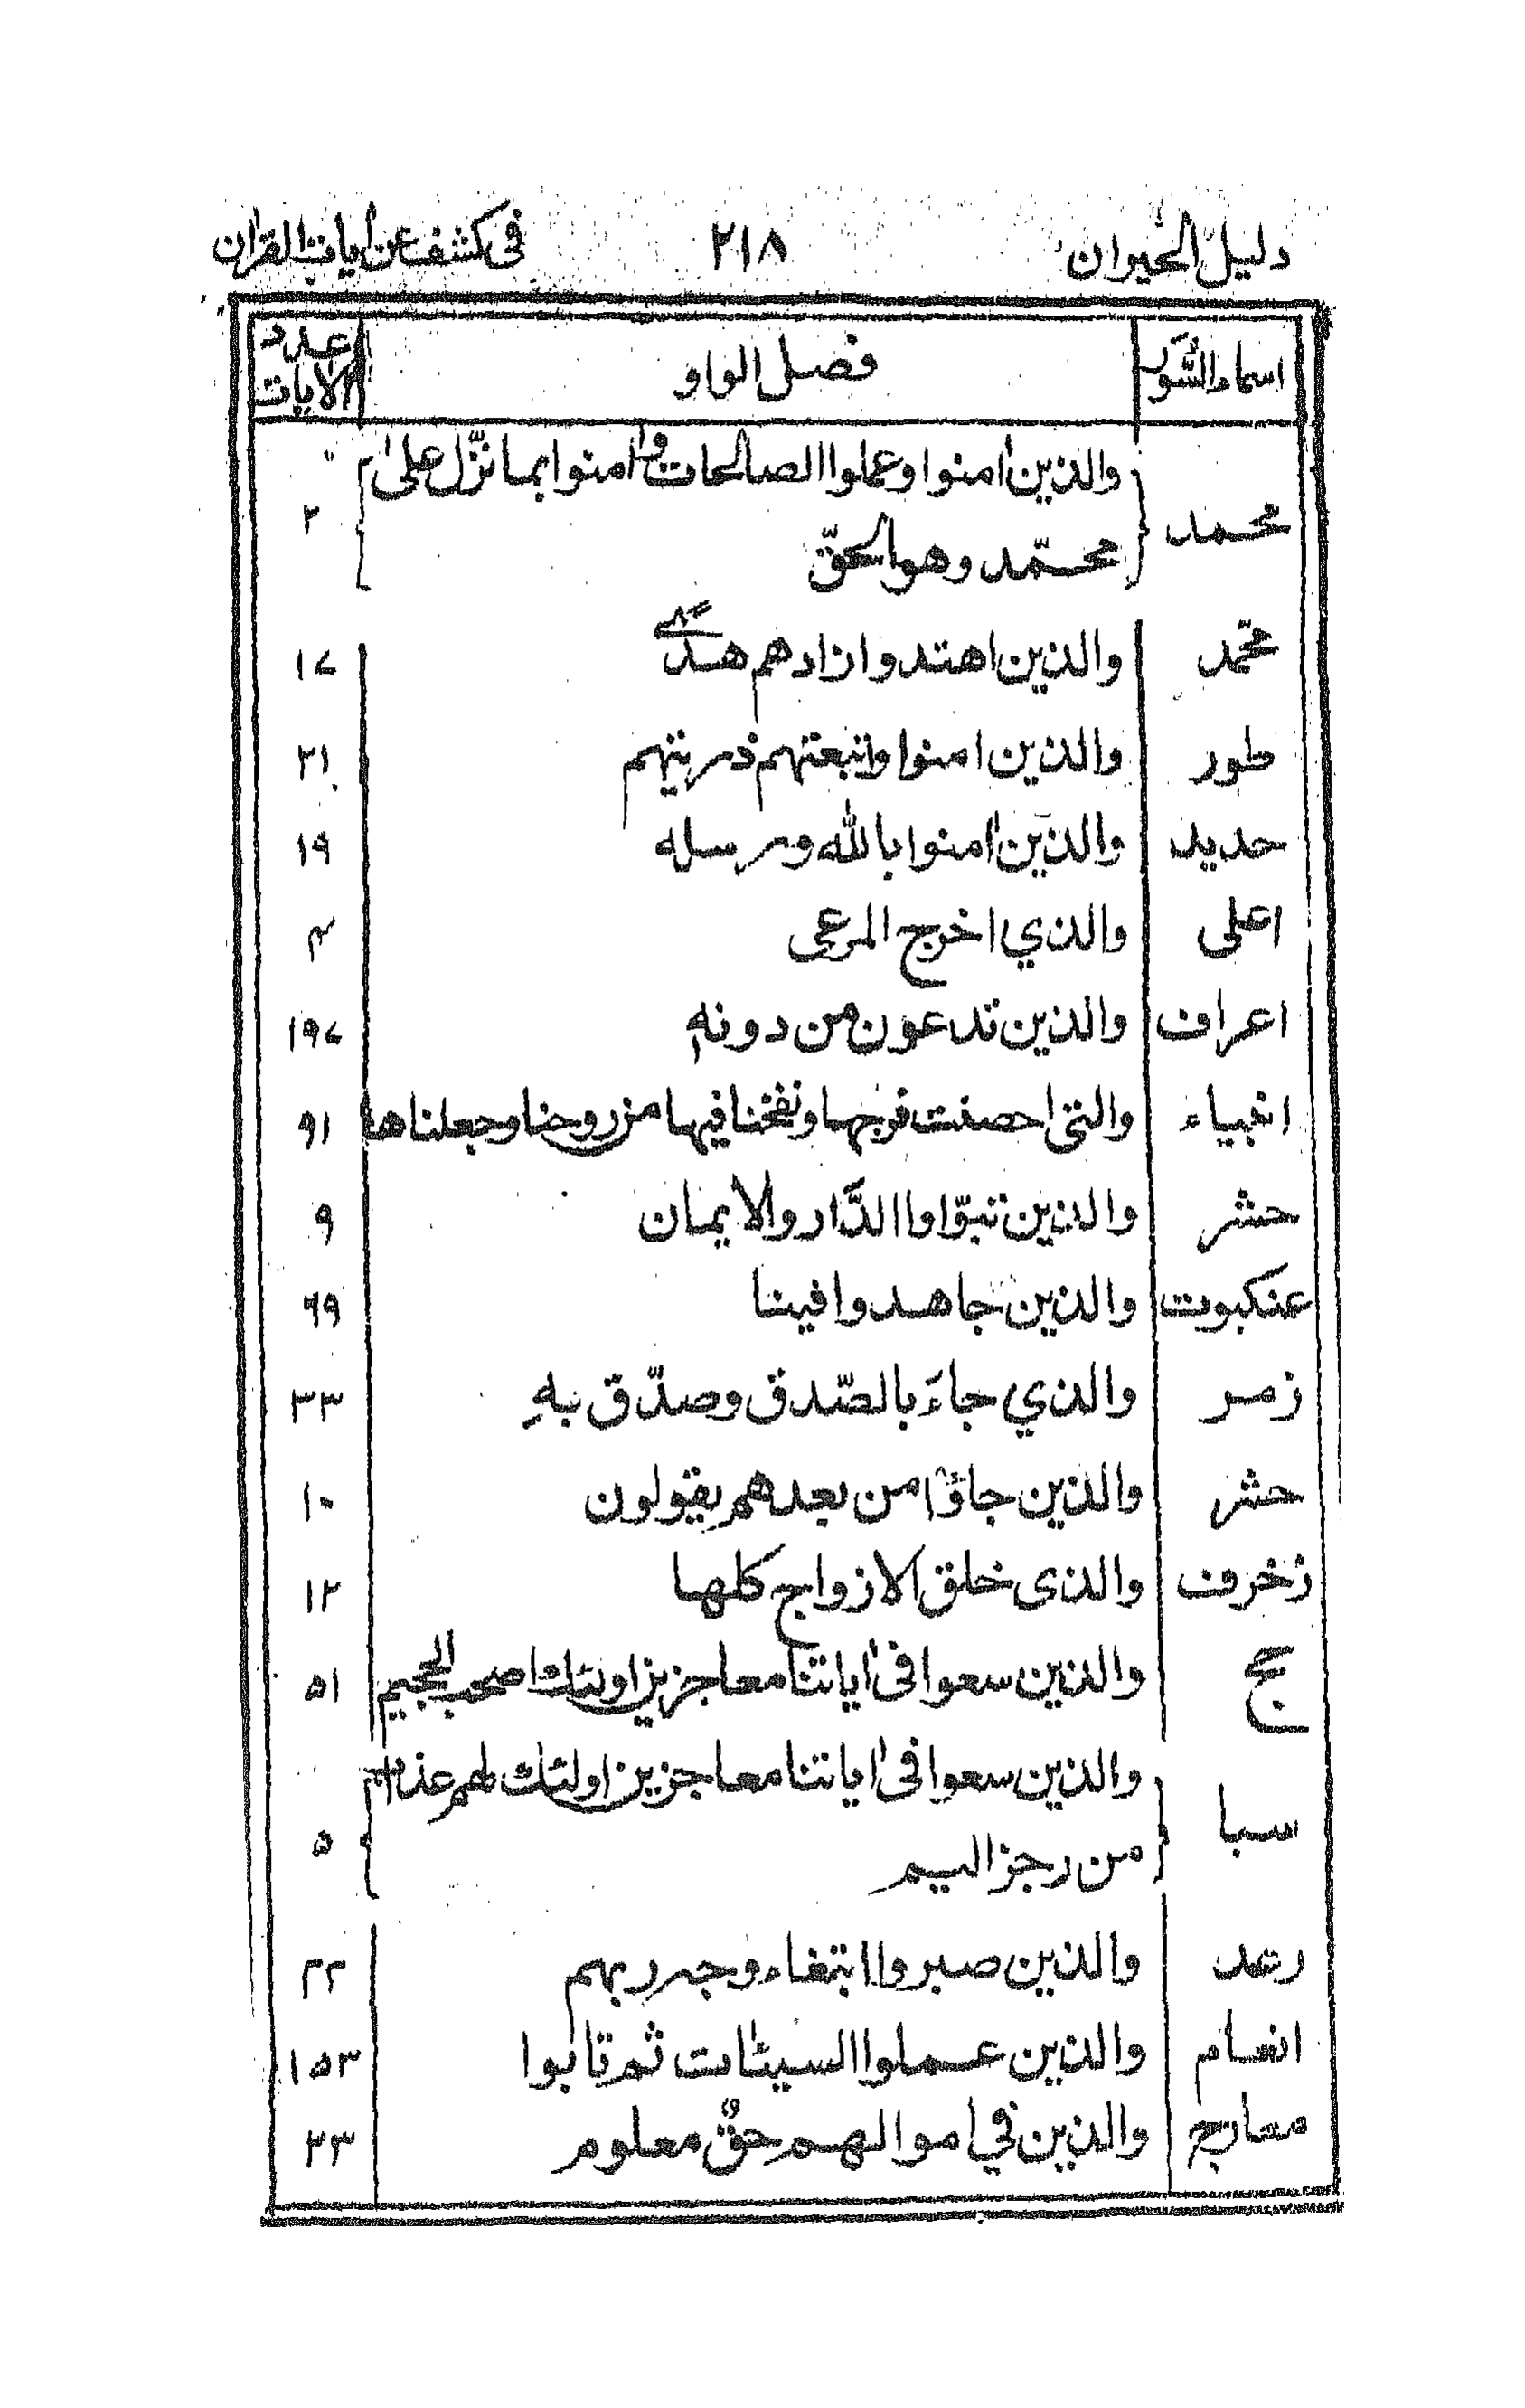 دليل الحيوان ٢١٨ في كشف عن ايات القران
اسماء السّور فصل الواو عدد الايات
والذين امنوا وعملوا الصالحات وامنوا بما نزّل على
محمد محمّد وهو الحقّ ٢
محمّد والذين اهتدوا زادهم هدًى ١٧
طور والذين امنوا واتبعتهم ذريتهم ٢١
حديد والذين امنوا بالله ورسله ١٩
اعلى والذي اخرج المرعى ٤
اعراف والذين تدعون من دونهِ ١٩٧
انبياء والتي احصنت فرجها ونفخنا فيها من روحنا وجعلناها ٩١
حشر والذين تبوّاوا الدَّار والايمان ٩
عنكبوت والذين جاهدوا فينا ٦٩
زمر والذي جاءَ بالصّدق وصدّق بهِ ٣٣
حشر والذين جاؤا من بعدهم يقولون ١٠
زخرف والذى خلق الازواج كلها ١٢
حج والذين سعوا فى اياتنا معاجزين اولئك اصحب الجحيم ٥١
والذين سعوا فى اياتنا معاجزين اولئك لهم عذاب
سبا من رجز اليم ٥
رعد والذين صبروا ابتغاء وجه ربهم ٢٢
انعام والذين عملوا السيئات ثم تابوا ١٥٣
معارج والذين في اموالهم حقٌ معلوم ٢٣